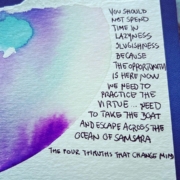 YOU SHOULD
NOT SPEND
TIME IN
LAZYNESS
SLUGISHNESS
BECAUSE
THE OPPORTUNITY
IS HERE NOW
WE NEED TO
PRACTICE THE
VIRTUE... NEED
TO TAKE THE BOAT
AND ESCAPE ACROSS THE
OCEAN OF SAMSARA
THE FOUR THRUTHS THAT CHANGE MIND